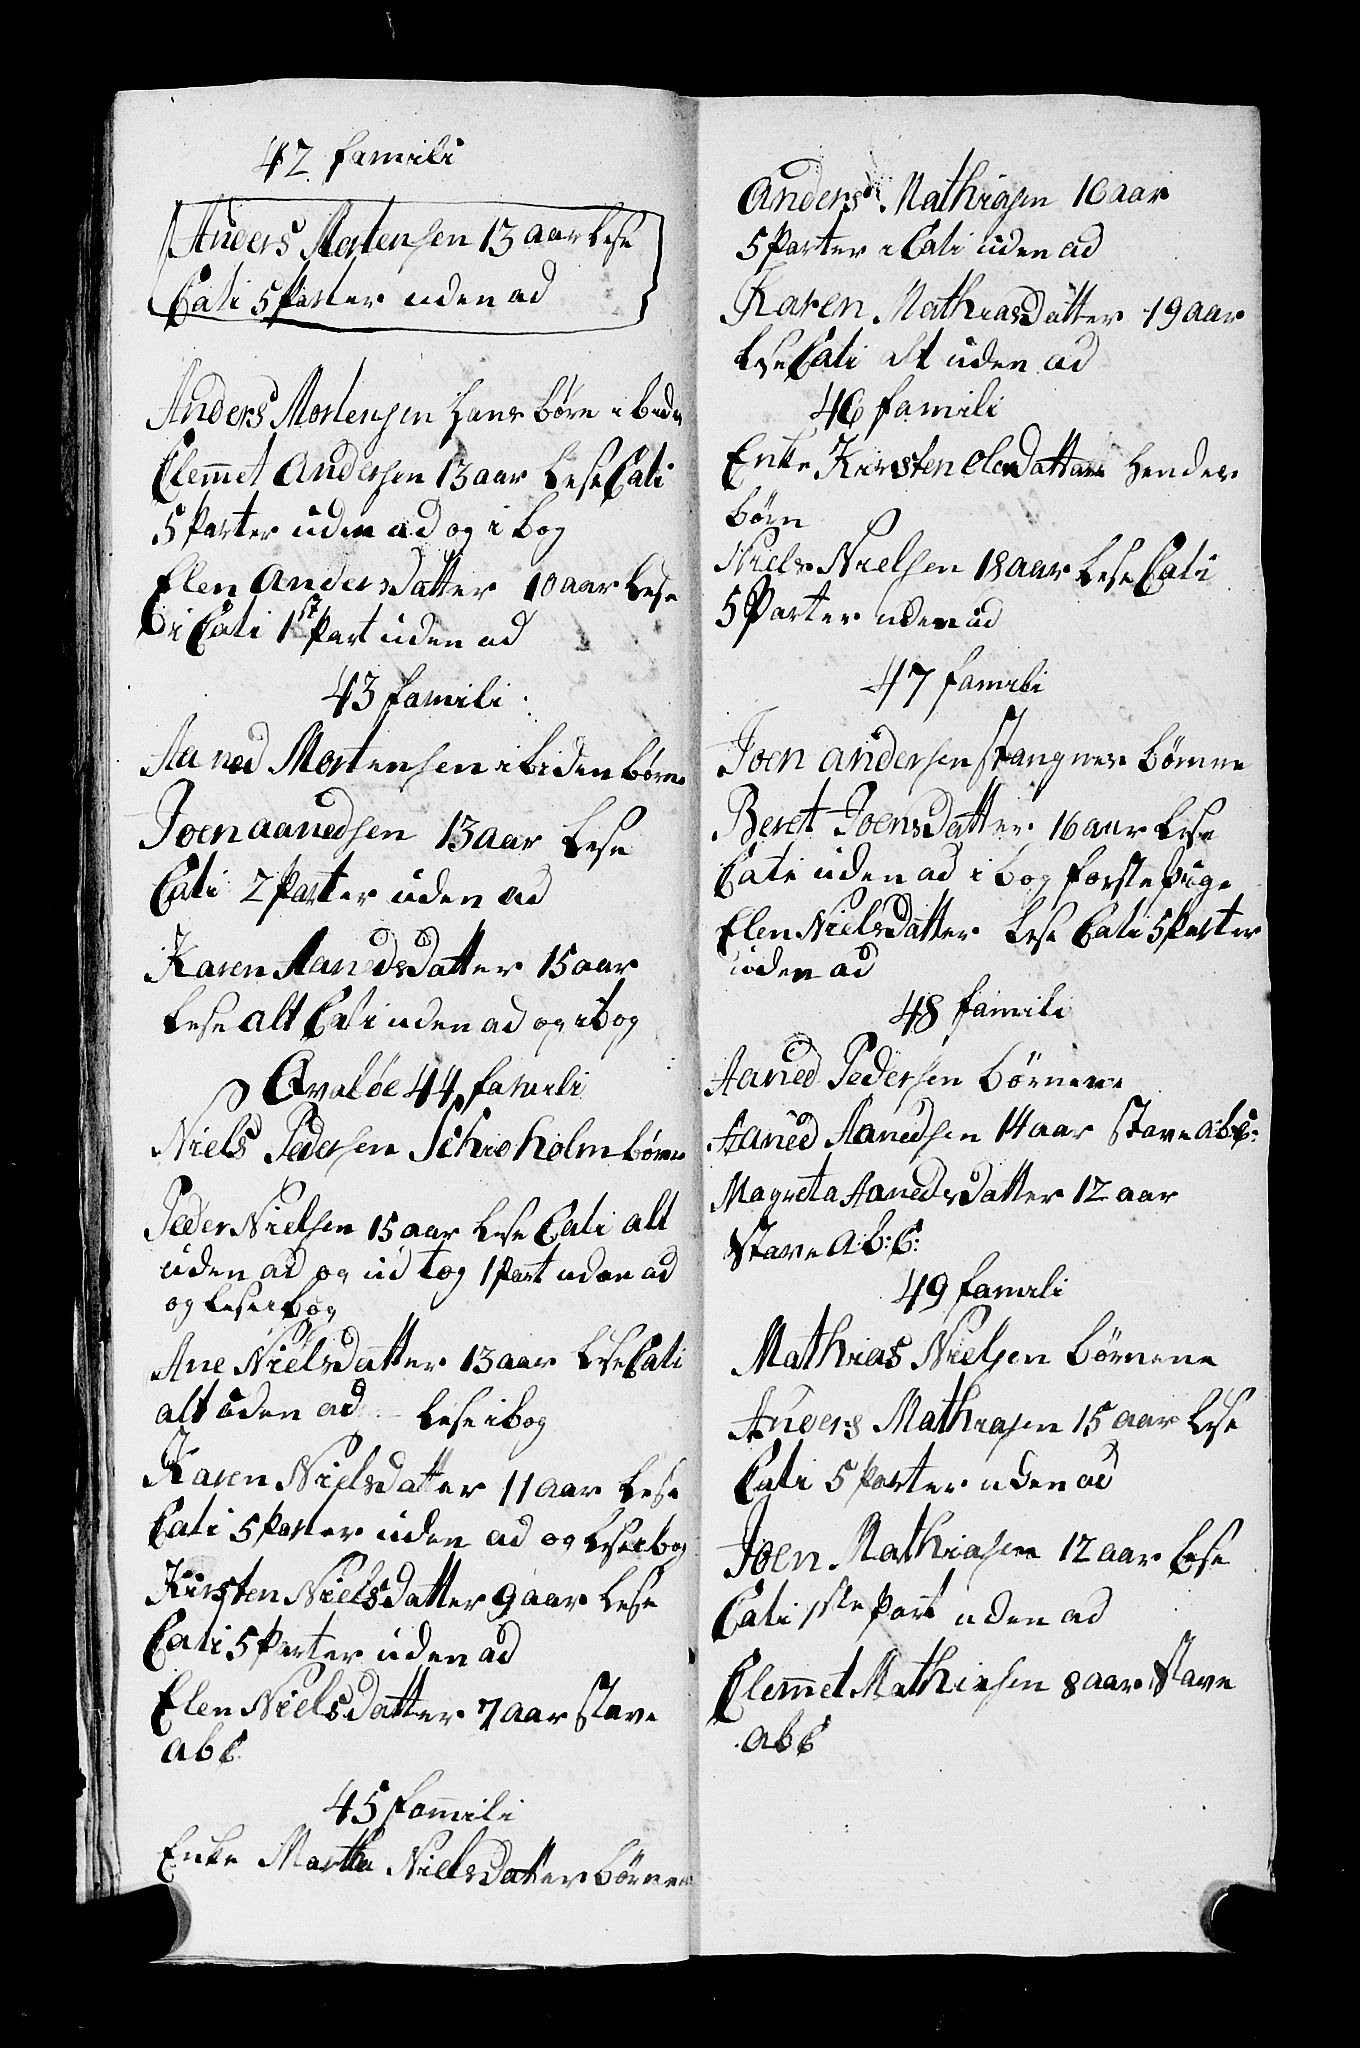 42 famili
Anders Mortensen 13 aar Lese
Cati 5 Parter uden ad
Anders Mortensen Hans börn ibide
Clem̄et Andersen 13 aar Lese Cati
5 Parter uden ad og i bog
Elen Andersdatter 10 aar Lese
i Cati 1st Part uden ad
43 famili
Aaned Mortensen ibiden börn
Joen aanedsen 13 aar Lese
Cati 2 Parter uden ad
Karen Aanedsdatter 15 aar
Lese alt Cati uden ad og ibog
Qvalöe 44 famili
Niels Pedersen Schieholm börn
Peder Nielsen 15 aar Lese Cati alt
uden ad og ud tog 1 Part uden ad
og Lese ibog
Ane Nielsdatter 13 aar Lese Cati
alt uden ad Lese i bog
Karen Nielsdatter 11 aar Lese
Cati 5 Parter uden ad og Lese ibog
Kirsten Nielsdatter 9 aar Lese
Cati 5 Parter uden ad
Elen Nielsdatter 7 aar stave
abc
45 fam̄ili
Enke Martha Nielsdatter börnen
Anders Mathiasen 10 aar
5 Parter i Cati uden ad
Karen Mathiasdatter 19 aar
Lese Cati alt uden ad
46 famili
Enke Kirsten Olesdatter Hendes
börn
Niels Nielsen 18 aar Lese Cati
5 Parter uden ad
47 famili
Joen andersen Stangnes börnne
Beret Joensdatter 16 aar Lese
Cati uden ad i bog forste Puge
Elen Nielsdatter Lese Cati 5 Parter
uden ad
48 famili
Aaned Pedersen börnene
Aaned Aanedsen 14 aar Stave a:b:c:
Magreta Aanedsdatter 12 aar
Stave A:b:C:
49 famili
Mathias Nielsen börnene
Anders Mathiasen 15 aar Lese
Cati 5 Parter uden ad
Joen Mathiasen 12 aar Lese
Cati 1ste Part uden ad
Clem̄et Mathiesen 8 aar Stave
abc